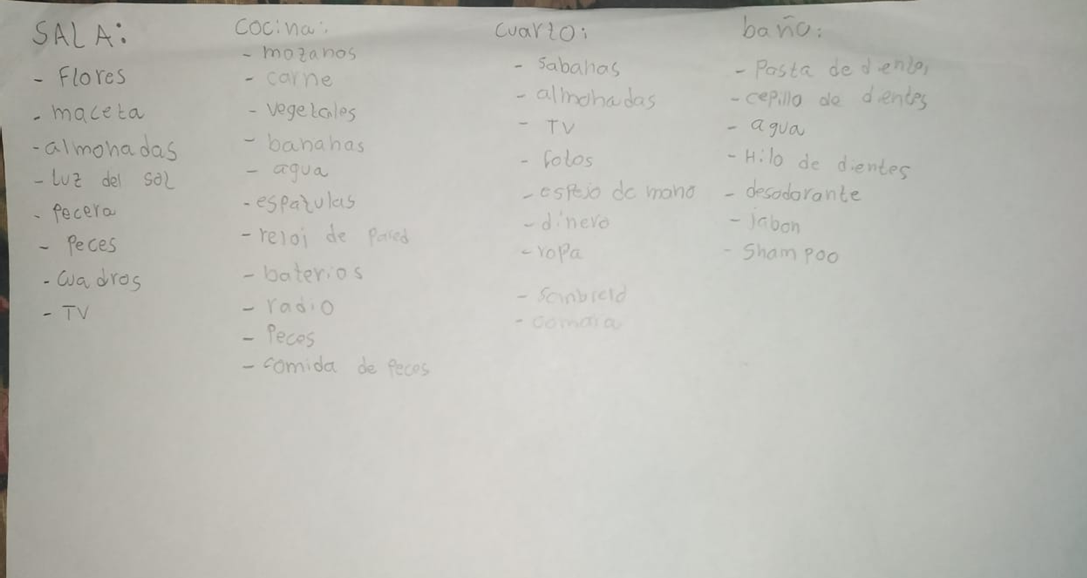 SALA:
- Flores
- maceta
- almohadas
- Luz del sol
- Pecera
- Peces
- Cuadros
- TV
Cocina:
- mozanos
- carne
- vegetales
- bananas
- agua
- espatulas
- reloj de pared
- baterios
- radio
- Peces
- comida de Peces
cuarto:
- Sabanas
- almohadas
- TV
- fotos
- espejo de mano
- dinero
- ropa
baño:
- Pasta de dientes
- cepillo de dientes
- agua
- Hilo de dientes
- desodorante
- Jabon
- Shampoo